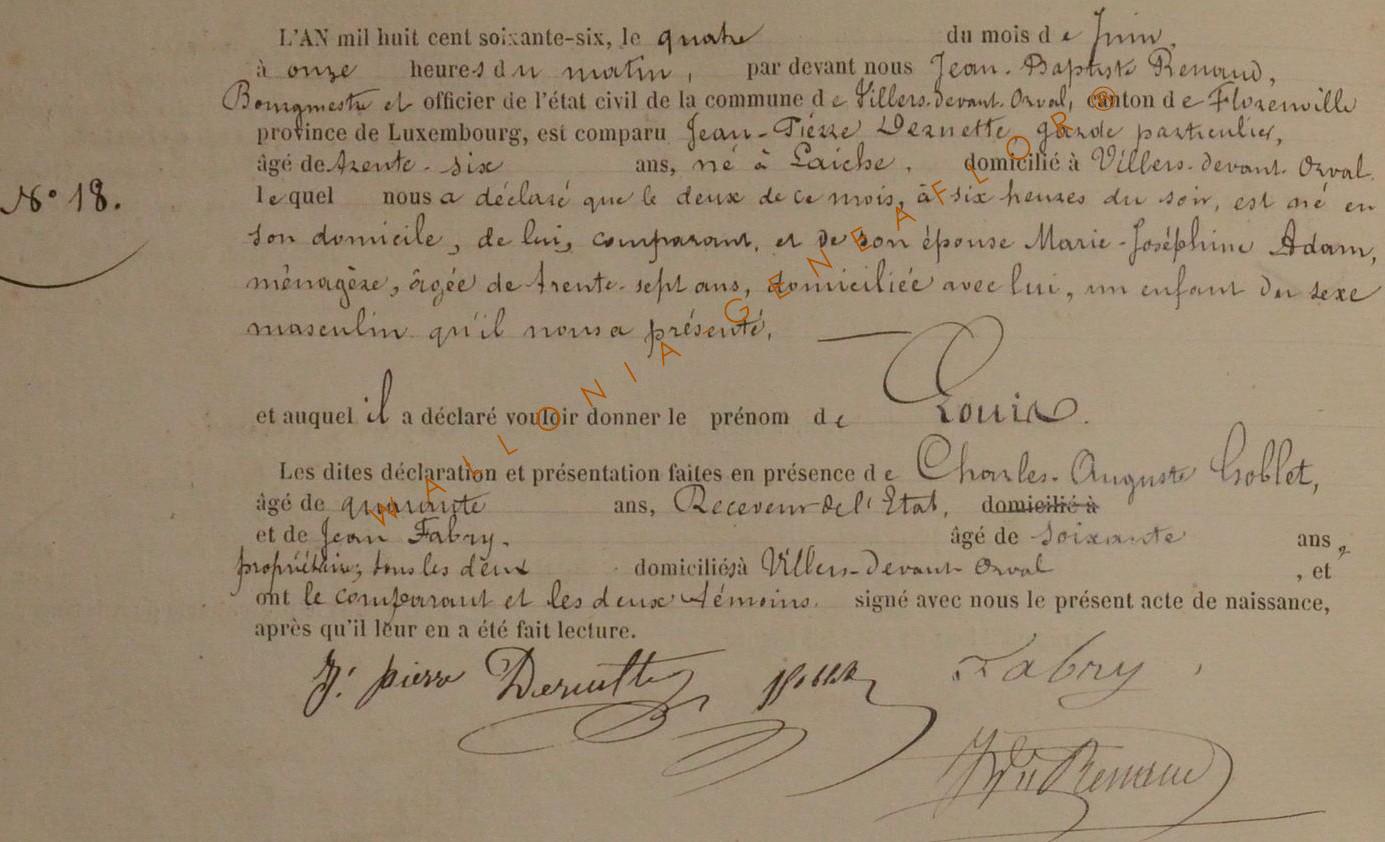 L'AN mil huit cent soixante-six, le quatre du mois de Juin,
à onze heures du matin, par devant nous Jean-Baptiste Renaud,
Bourgmestre et officier de l'état civil de la commune de Villers-devant-Orval, canton de Florenville
province de Luxembourg, est comparu Jean-Pierre Dernette, garde particulier,
âgé de trente-six ans, né à Laiche, domicilié à Villers-devant-Orval
N° 18.
lequel nous a déclaré que le deux de ce mois, à six heures du soir, est né en
son domicile, de lui, comparant, et de son épouse Marie-Joséphine Adam,
ménagère, âgée de trente-sept ans, domiciliée avec lui, un enfant du sexe
masculin qu'il nous a présenté,
et auquel il a déclaré vouloir donner le prénom de Louis.
Les dites déclaration et présentation faites en présence de Charles-Auguste Goblet,
âgé de quarante ans, Receveur de l'Etat, domicilié à
et de Jean Fabry, âgé de soixante ans,
propriétaire, tous les deux domiciliés à Villers-devant-Orval, et
ont le comparant et les deux témoins signé avec nous le présent acte de naissance,
après qu'il leur en a été fait lecture.
J. pierre Dernette Fabry
Renaud
WALLONIA GENEAFLOR ®